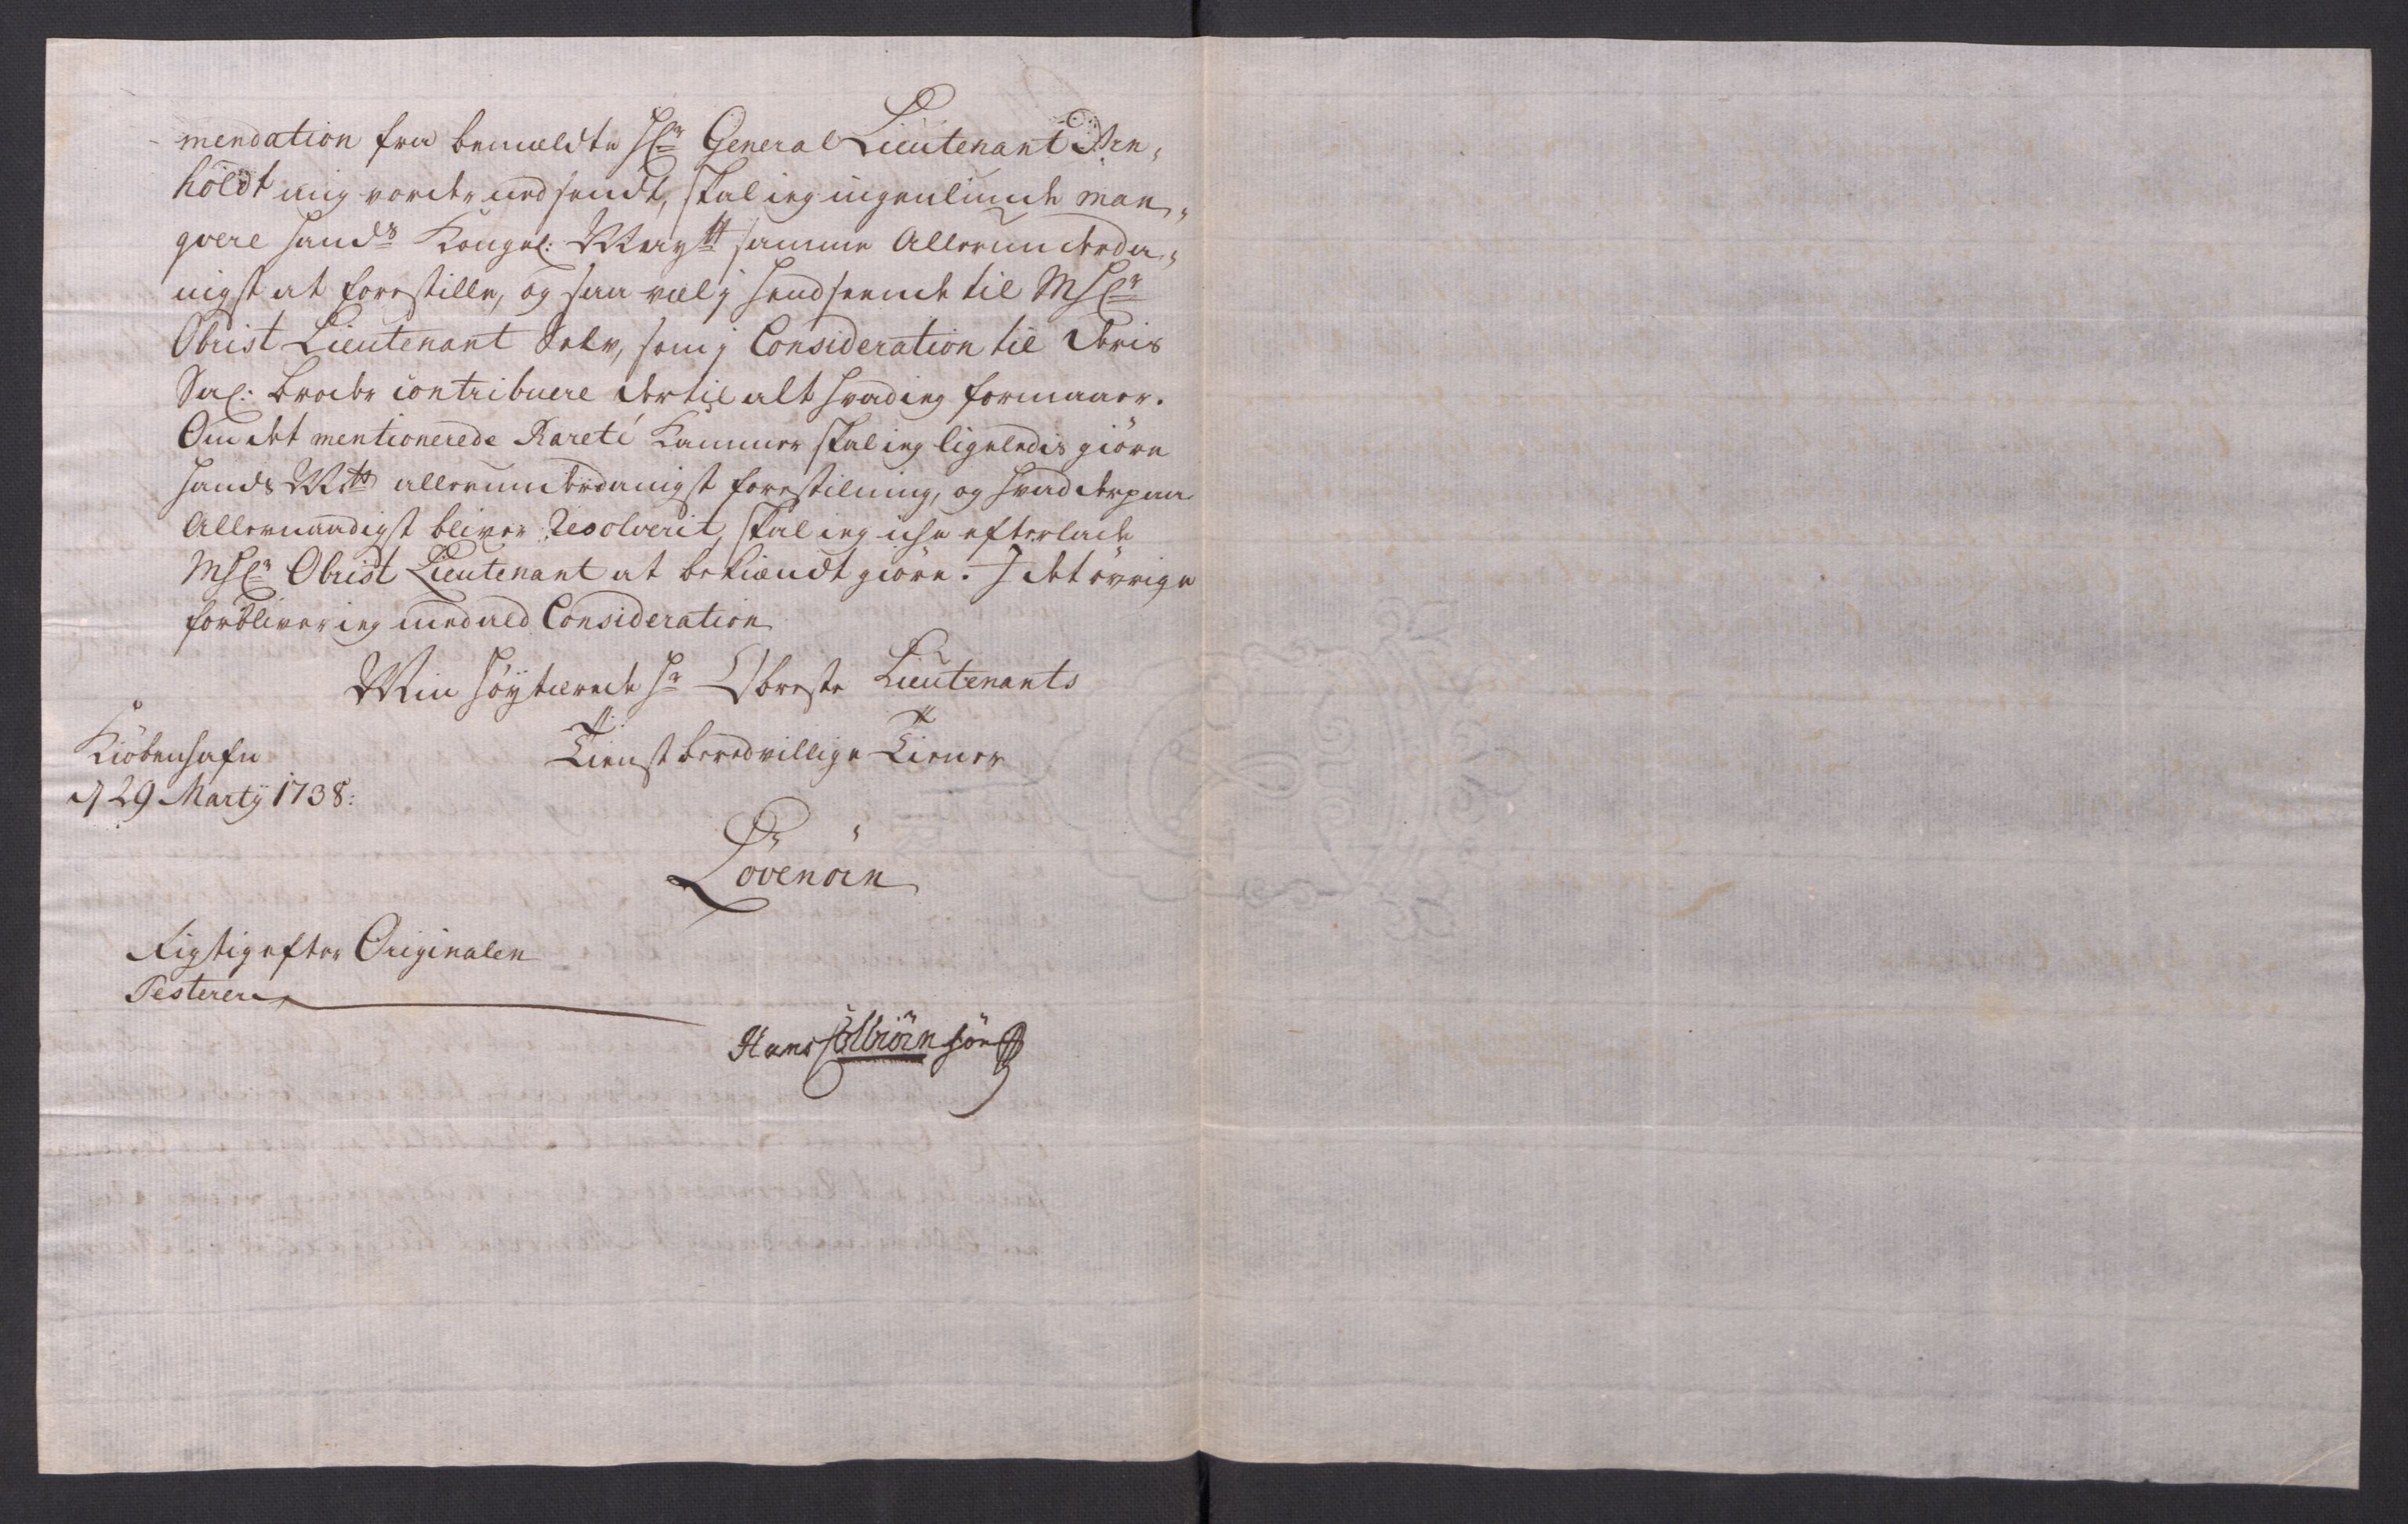 mendation fra bemeldte Hr General Lieutenant Arn„
holdt mig vorder nedsendt, skal ieg ingenlunde man„
qvere Hands Kongel: Mayst samme Allerunderda„
nigst at forestille, og saa vel j Henseende til MHr
Obrist Lieutenant Selv, som j Consideration til Deris
Sal: broder contribuere dertil alt hvad ieg formaaer.
Om det mentionerede Rareté Kammer skal ieg ligeledis giöre
Hands Mtt allerunderdanigst forestilning, og hvad derpaa
Allernaadigst bliver Resolverit, skal ieg icke efterlade
MHr Obrist Lieutenant at bekiendtgiöre. I det övrige
forbliver ieg med ald Consideration
Min Höytærede Hr Obriste Lieutenants
Kiöbenhafn
Tienstberedvillige Tiener
d 29 Martij 1738:
Lövenörn
Rigtig efter Originalen
Testerer
Hans